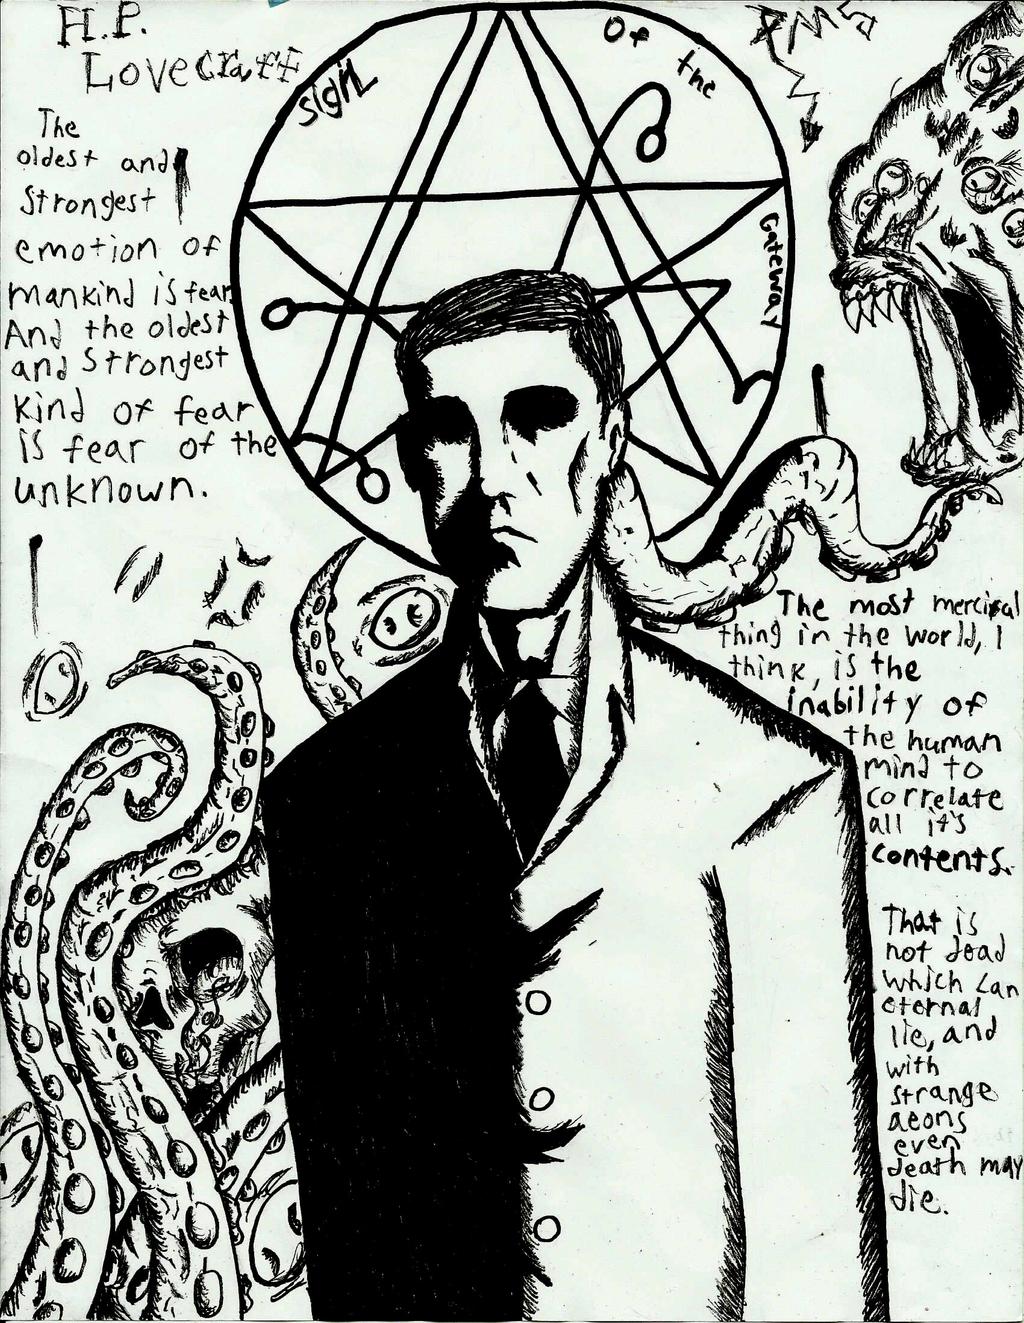 H.P.
Lovecraft
The
oldest and
Strongest
emotion of
mankind is fear.
And the oldest
and Strongest
kind of fear
is fear of the
unknown.
Sigil
Of the
Gateway
The most merciful
thing in the world, I
think, is the
inability of
the human
mind to
correlate
all it's
contents.
That is
not dead
which can
eternal
lie, and
with
strange
aeons
even
death may
die.